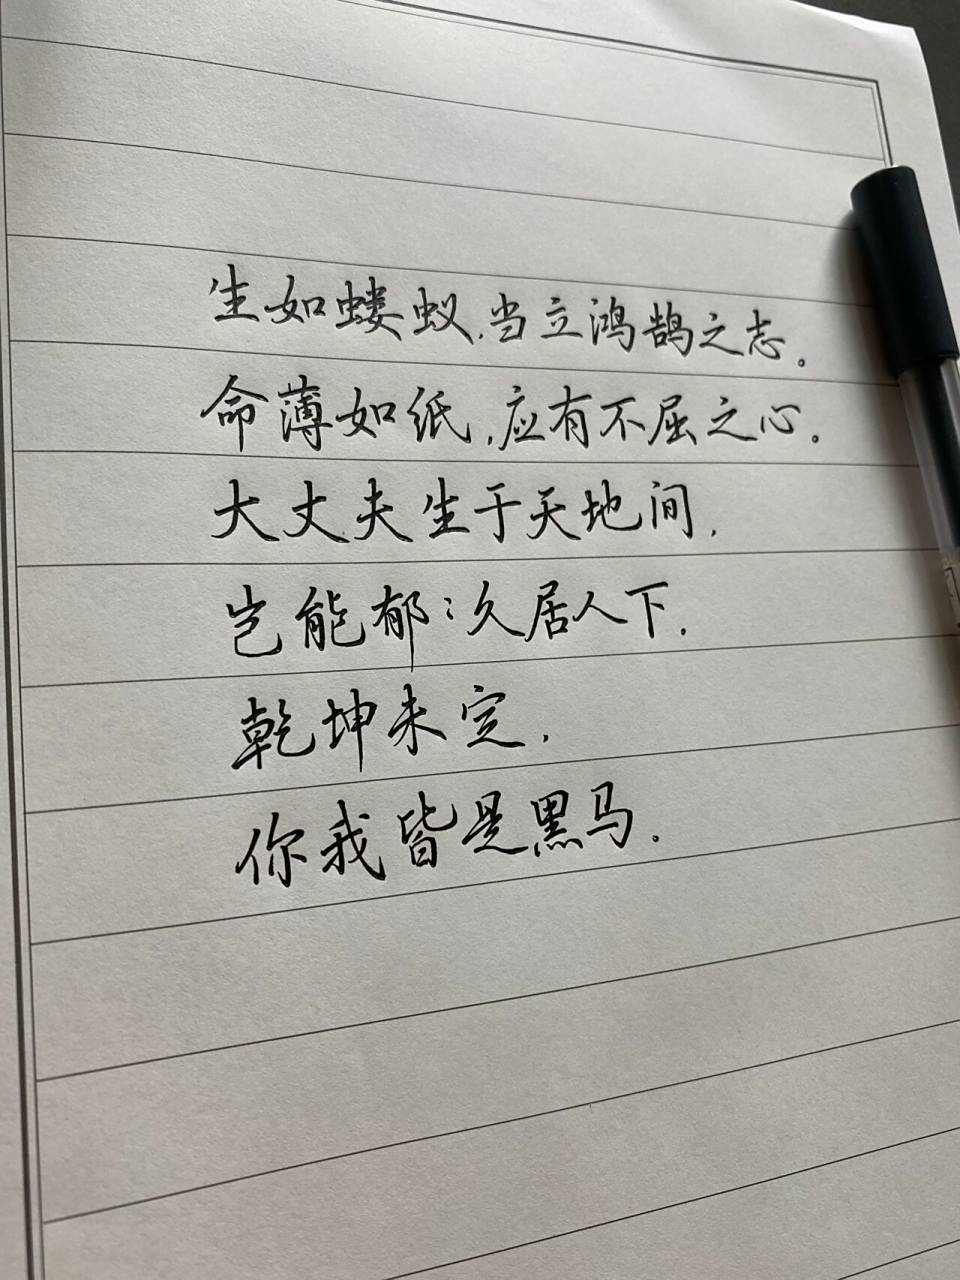 生如蝼蚁,当立鸿鹄之志。
命薄如纸,应有不屈之心。
大丈夫生于天地间,
岂能郁:久居人下,
乾坤未定,
你我皆是黑马。